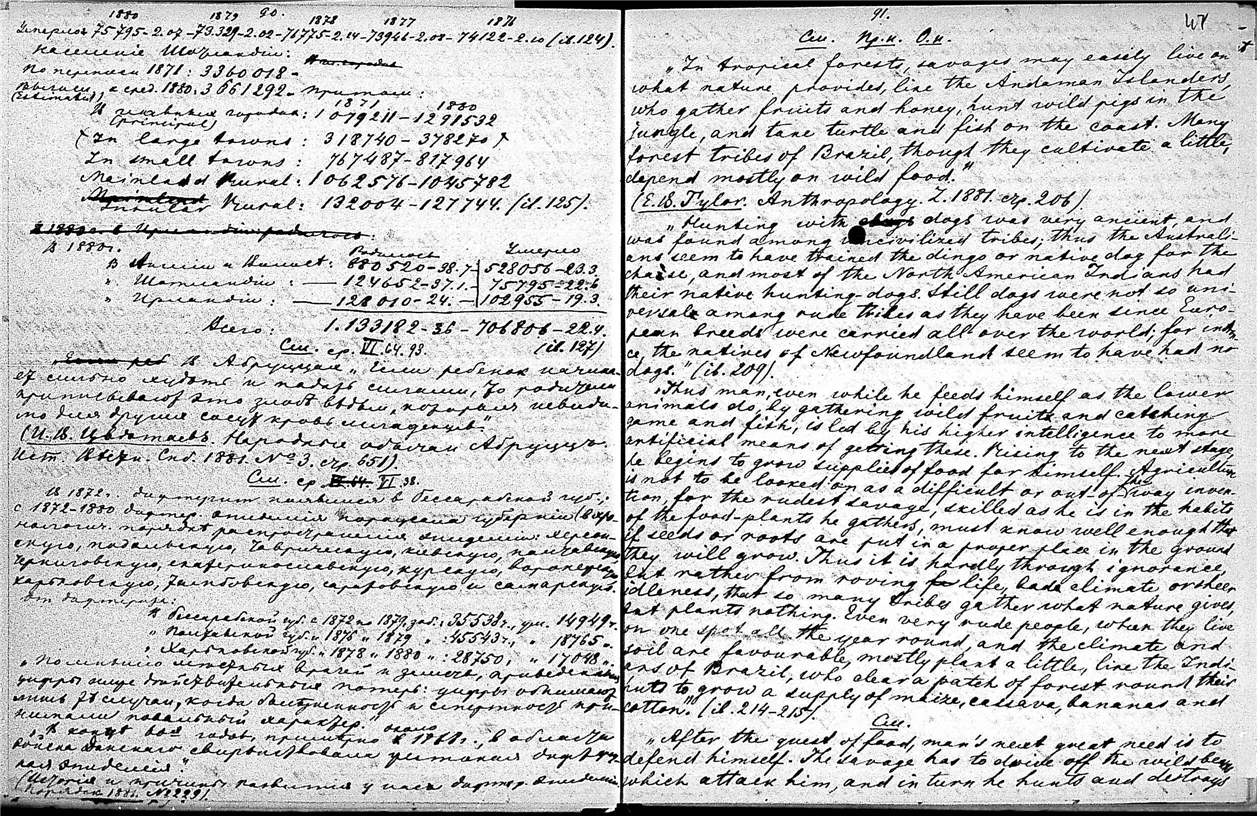 90.
1880 1879 1878 1877 1876
Умерлов 75795-2.07-73.329-2.02-76775-2.14-73946-2.08-74122-2.10 (ib. 124).
Населеніе Шотландіи:
По переписи 1871: 3360018-
(estimated) къ сред. 1880: 3661292. При томъ:
1871 1880
Въ главныхъ городахъ: 1079211-1291532
(principal)
(In large towns: 318740-378270)
In small towns: 767487-817964
Mainland Rural: 1062576-1045782
Insular Rural: 132004-127744. (ib. 125).
Въ 1880г. Родилось Умерло
Въ Англіи и Валлисѣ: 880520-98.7- 528056-23.3.
" Шотландіи: 124652-37.1.- 75795-22.6
" Ирландіи: 128010-24.- 102955-19.3.
Всего: 1.133182-36-706806-22.4.
(ib. 127)
См. ср. VI 64. 93.
Въ Абруццахъ "Если ребенокъ начина-
етъ сильно худѣть и падать силами, то родители
приписываютъ это злой вѣдьмѣ, которая невиди-
мо для другихъ сосетъ кровь младенцевъ.
(И. В. Цвѣтаевъ. Народные обычаи Абруццъ.
Ист. Вѣстн. Спб. 1881. № 3. стр. 651).
См. ср. VI 98.
Въ 1872г. дифтеритъ появился въ бессарабской губ.;
с 1872-1880 дифтер. эпидемія поразила губерніи (въ хро-
нологич. порядкѣ распространенія эпидеміи: херсон-
скую, подольскую, таврическую, кіевскую, полтавскую,
черниговскую, екатеринославскую, курскую, воронежскую,
харьковскую, тамбовскую, саратовскую и самарскую.
От дифтерита:
Въ Бессарабской губ. с 1872 по 1879, заб.: 35538 ч., ум. 14949 ч.
" Полтавской губ. 1876 " 1879 " : 45543 ч., " 18765 "
" Харьковской губ. 1878 " 1880 " : 28750, " 17048 "
"По мнѣнію мѣстныхъ врачей и земствъ, приведенныя
цифры ниже дѣйствительныхъ потерь: цифры обнимаютъ
лишь тѣ случаи, когда болѣзненность и смертность при-
нимали повальный характеръ."
(Порядокъ 1881. № 229).
91.
См. Пр. н. О. н.
"In tropical forests, savages may easily live on
what nature provides, like the Andaman Islanders,
who gather fruits and honey, hunt wild pigs in the
jungle, and take turtle and fish on the coast. Many
forest tribes of Brazil, though they cultivate a little,
depend mostly on wild food."
(E. B. Tylor. Anthropology. L. 1881. стр. 206).
"Hunting with dogs was very ancient, and
was found among uncivilized tribes; thus the Australi-
ans seem to have trained the dingo or native dog for the
chaise, and most of the North American Indians had
their native hunting-dogs. Still dogs were not so uni-
versale among rude tribes as they have been since Euro-
pean breeds were carried all over the world: for instan-
ce, the natives of Newfoundland seem to have had no
dogs." (ib. 209).
"Thus man, even while he feeds himself as the lower
animals do, by gathering wild fruits and catching
game and fish, is led by his higher intelligence to more
artificial means of getting these. Rising to the next stage,
he begins to grow supplies of food for himself. Agriculture
is not to be looked on as a difficult or out-of-the-way inven-
tion, for the rudest savage, skilled as he is in the habits
of the food-plants he gathers, must know well enough that
if seeds or roots are put in a proper place in the ground
they will grow. Thus it is hardly through ignorance,
but rather from roving life, bad climate, or sheer
idleness, that so many tribes gather what nature gives,
but plants nothing. Even very rude people, when they live
on one spot all the year round, and the climate and
soil are favourable, mostly plant a little, like the Indi-
ans of Brazil, who clear a patch of forest round their
huts to grow a supply of maize, cassava, bananas and
cotton." (ib. 214-215).
См.
"After the quest of food, man's next great need is to
defend himself. The savage has to drive off the wild beasts
which attack him, and in turn he hunts and destroys